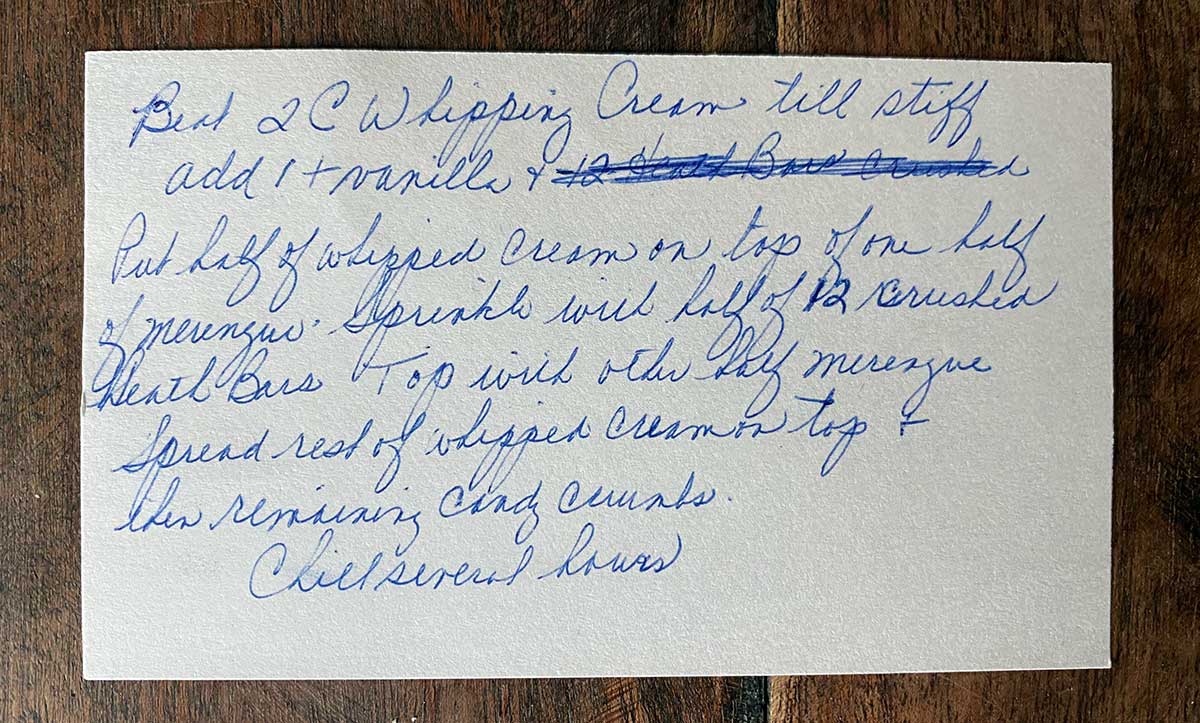 Beat 2 C Whipping Cream till stiff
add 1 t vanilla + 12 Heath Bars crushed
Put half of whipped cream on top of one half
of merengue. Sprinkle with half of 12 crushed
Heath Bars Top with other half merengue
Spread rest of whipped cream on top +
then remaining candy crumbs.
Chill several hours